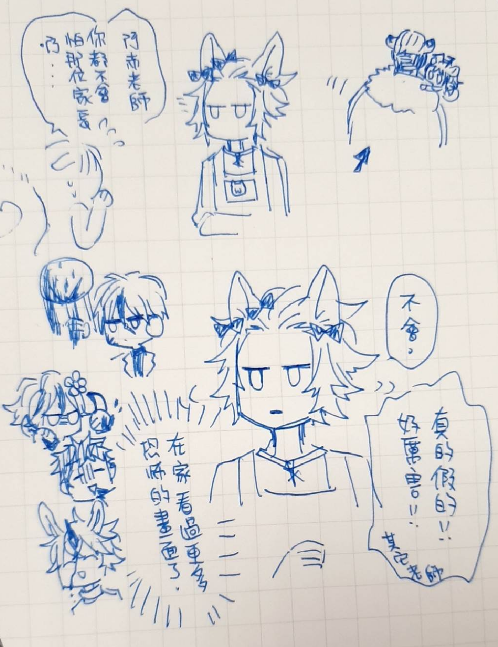 阿尚老師
你都不會
怕那位家長
啊……
不會。
真的假的!!
好厲害!!
其他老師
在家看過更多
恐怖的畫面了.